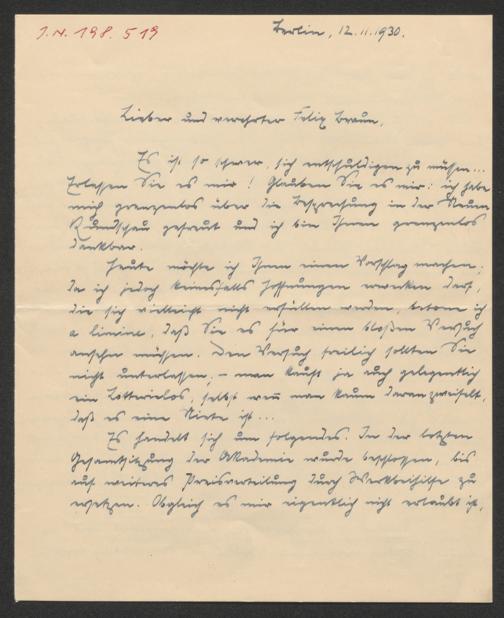 J.N. 198.519
Berlin, 12.11.1930.
Lieber und verehrter Felix Braun,
Es ist so schwer, sich entschuldigen zu müssen...
Erlassen Sie es mir! Glauben Sie es mir: ich habe
mich grenzenlos über die Besprechung in der Neuen
Rundschau gefreut und ich bin Ihnen grenzenlos
dankbar.
Heute möchte ich Ihnen einen Vorschlag machen;
da ich jedoch keinesfalls Hoffnungen erwecken darf,
die sich vielleicht nicht erfüllen werden, betone ich
a limine, daß Sie es für einen bloßen Versuch
ansehen müssen. Den Versuch freilich sollten Sie
nicht unterlassen, – man kauft ja auch gelegentlich
ein Lotterielos, selbst wenn man kaum daran zweifelt,
daß es eine Niete ist...
Es handelt sich um folgendes. In der letzten
Gesamtsitzung der Akademie wurde beschlossen, bis
auf weiteres Preisverteilung durch Werkbeihilfe zu
ersetzen. Obgleich es mir eigentlich nicht erlaubt ist,